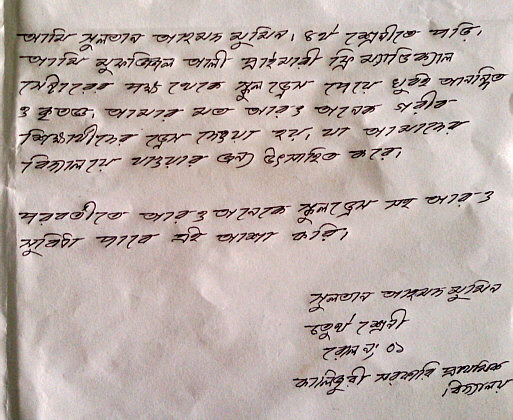 আমি সুলতান আহমদ মুমিন। ৪র্থ শ্রেণীতে পড়ি।
আমি মুফাজ্জিল আলী প্রাইমারী ফ্রি ম্যাডিক্যাল
সেন্টারের পক্ষ থেকে স্কুল ড্রেস পেয়ে খুবই আনন্দিত
ও কৃতজ্ঞ। আমার মত আরও অনেক গরীব
শিক্ষার্থীদের ড্রেস দেওয়া হয়। যা আমাদের
বিদ্যালয়ে যাওয়ার জন্য উৎসাহিত করে।
পরবর্তীতে আরও অনেকে স্কুলড্রেস সহ আরও
সুবিধা পাবে এই আশা করি।
সুলতান আহমদ মুমিন
চতুর্থ শ্রেণী
রোল নং ০১
সরকারি প্রাথমিক
বিদ্যালয়